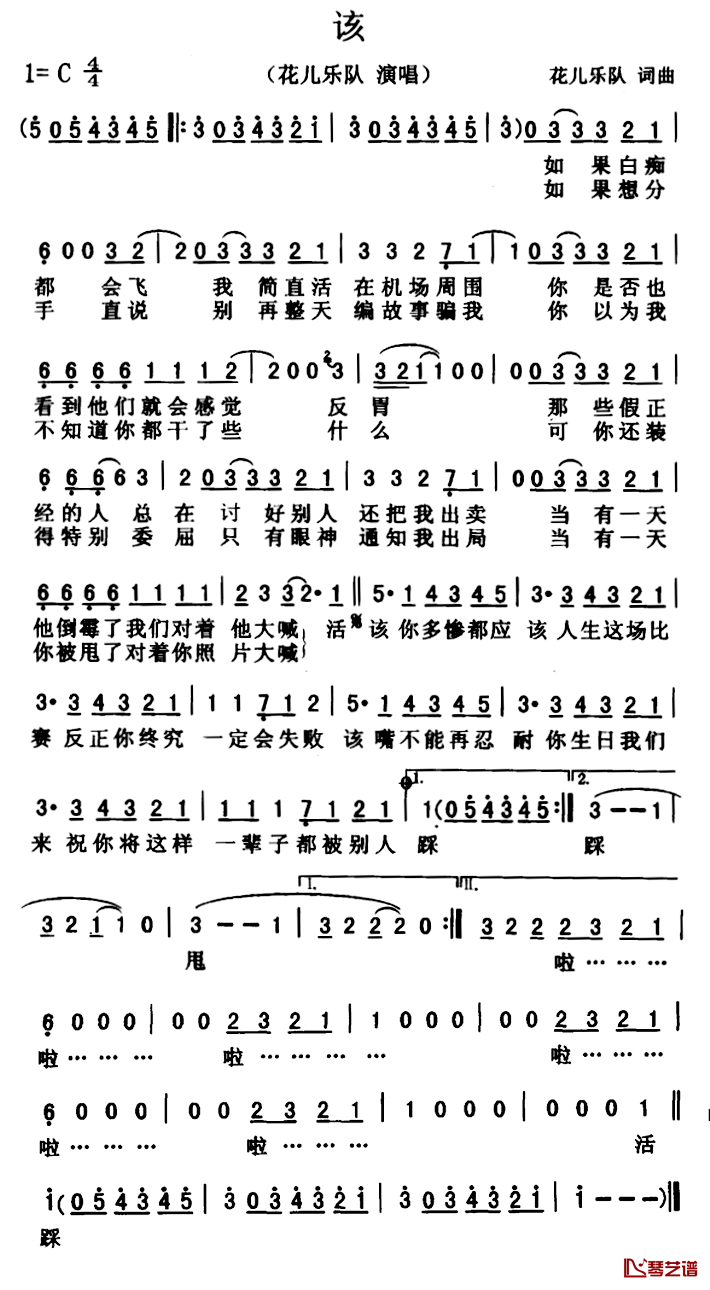 该
1= C 4/4 （花儿乐队 演唱） 花儿乐队 词曲
(5 0 5 4 3 4 5 ‖: 3 0 3 4 3 2 1 | 3 0 3 4 3 4 5 | 3) 0 3 3 3 2 1 |
如 果 白 痴
如 果 想 分
6 0 0 3 2 | 2 0 3 3 3 2 1 | 3 3 2 7 1 | 1 0 3 3 3 2 1 |
都 会 飞 我 简 直 活 在 机 场 周 围 你 是 否 也
手 直 说 别 再 整 天 编 故 事 骗 我 你 以 为 我
6 6 6 6 1 1 1 2 | 2 0 0 2 3 | 3 2 1 1 0 0 | 0 0 3 3 3 2 1 |
看 到 他 们 就 会 感 觉 反 胃 那 些 假 正
不 知 道 你 都 干 了 些 什 么 可 你 还 装
6 6 6 6 3 | 2 0 3 3 3 2 1 | 3 3 2 7 1 | 0 0 3 3 3 2 1 |
经 的 人 总 在 讨 好 别 人 还 把 我 出 卖 当 有 一 天
得 特 别 委 屈 只 有 眼 神 通 知 我 出 局 当 有 一 天
6 6 6 6 1 1 1 1 | 2 3 3 2· 1 ‖ 5· 1 4 3 4 5 | 3· 3 4 3 2 1 |
他 倒 霉 了 我 们 对 着 他 大 喊 活 该 你 多 惨 都 应 该 人 生 这 场 比
你 被 甩 了 对 着 你 照 片 大 喊
3· 3 4 3 2 1 | 1 1 7 1 2 | 5· 1 4 3 4 5 | 3· 3 4 3 2 1 |
赛 反 正 你 终 究 一 定 会 失 败 该 嘴 不 能 再 忍 耐 你 生 日 我 们
1. 2.
3· 3 4 3 2 1 | 1 1 1 7 1 2 1 | 1 (0 5 4 3 4 5 :‖ 3 — — 1 |
来 祝 你 将 这 样 一 辈 子 都 被 别 人 踩 踩
I. II.
3 2 1 1 0 | 3 — — 1 | 3 2 2 2 0 :‖ 3 2 2 2 3 2 1 |
甩 啦 … … …
6 0 0 0 | 0 0 2 3 2 1 | 1 0 0 0 | 0 0 2 3 2 1 |
啦 … … … 啦 … … … … 啦 … … …
6 0 0 0 | 0 0 2 3 2 1 | 1 0 0 0 | 0 0 0 1 ‖
啦 … … … 啦 … … … 活
1 (0 5 4 3 4 5 | 3 0 3 4 3 2 1 | 3 0 3 4 3 2 1 | 1 — — —) ‖
踩
琴艺谱